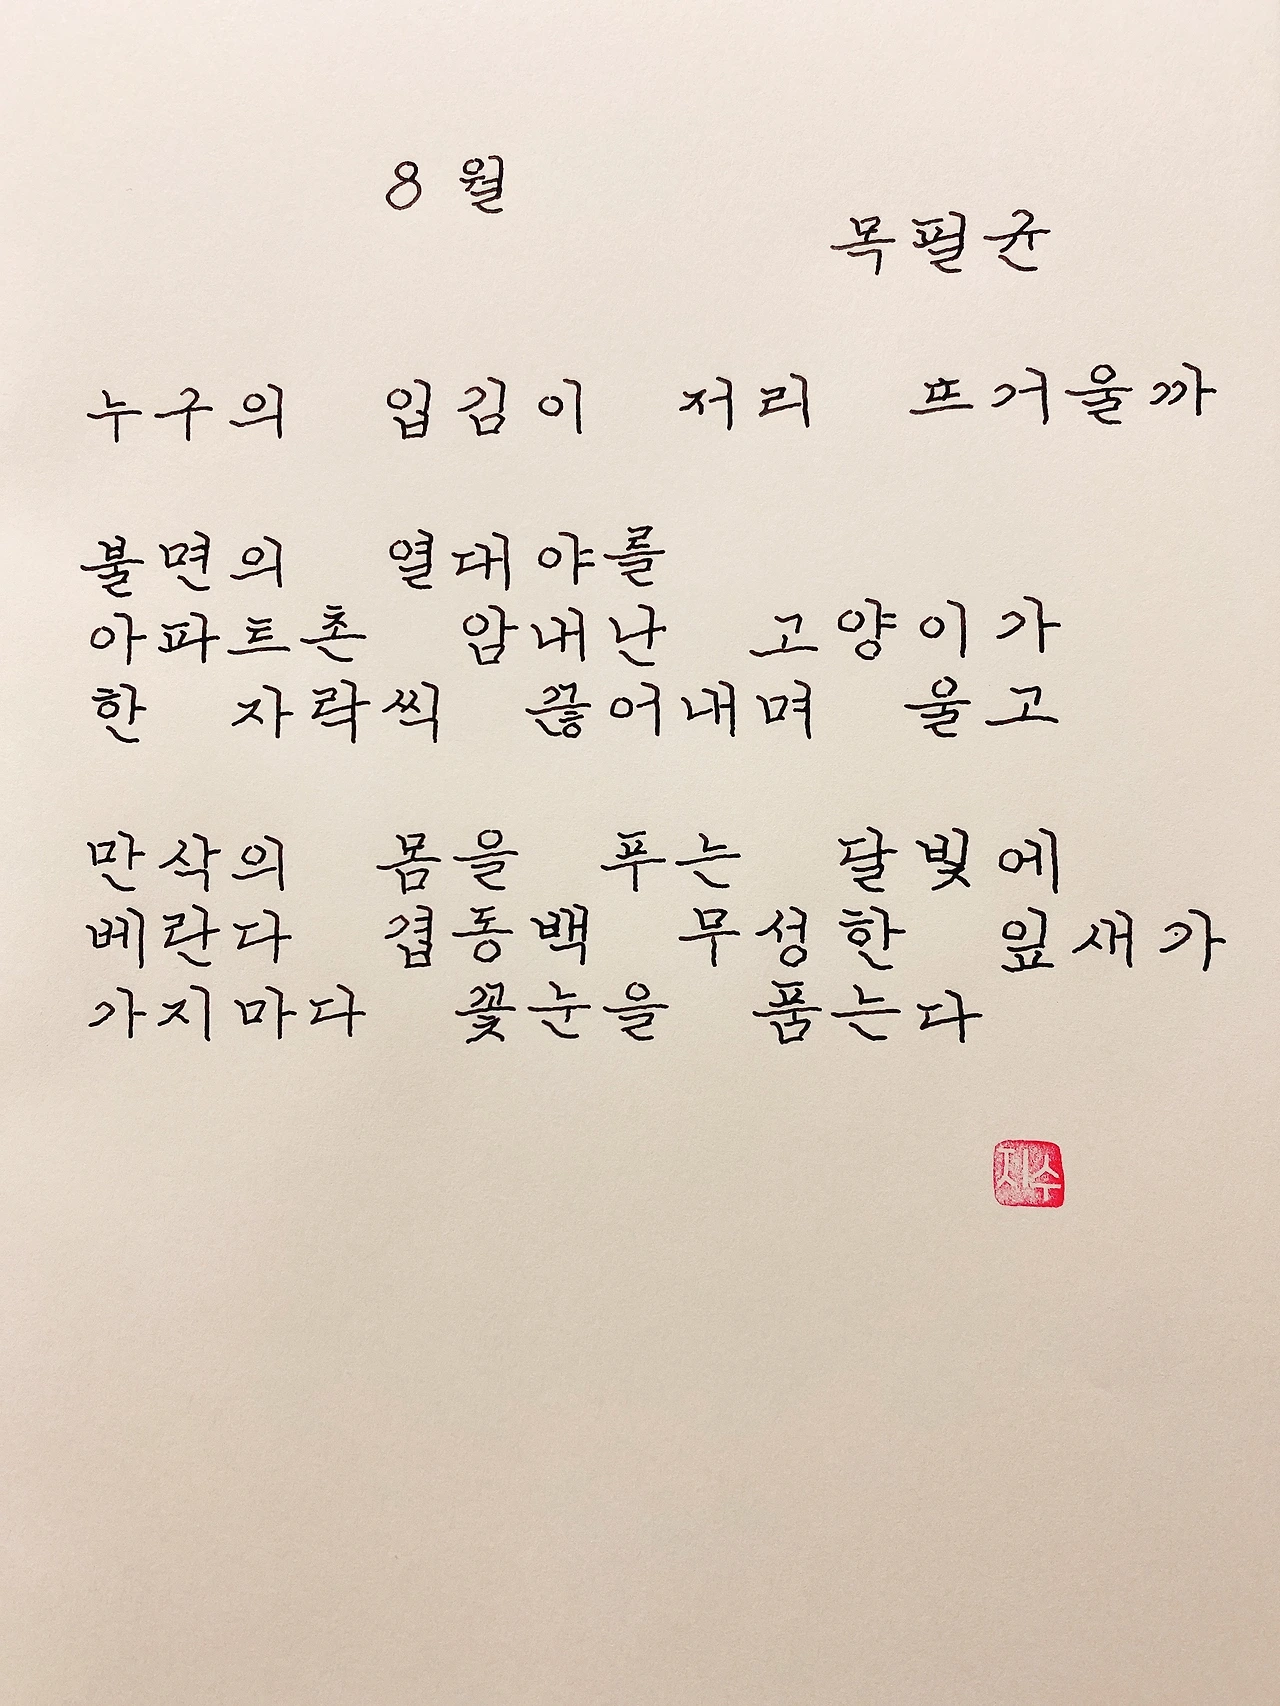 8월
목필균
누구의 입김이 저리 뜨거울까
불면의 열대야를
아파트촌 암내난 고양이가
한 자락씩 끊어내며 울고
만삭의 몸을 푸는 달빛에
베란다 겹동백 무성한 잎새가
가지마다 꽃눈을 품는다